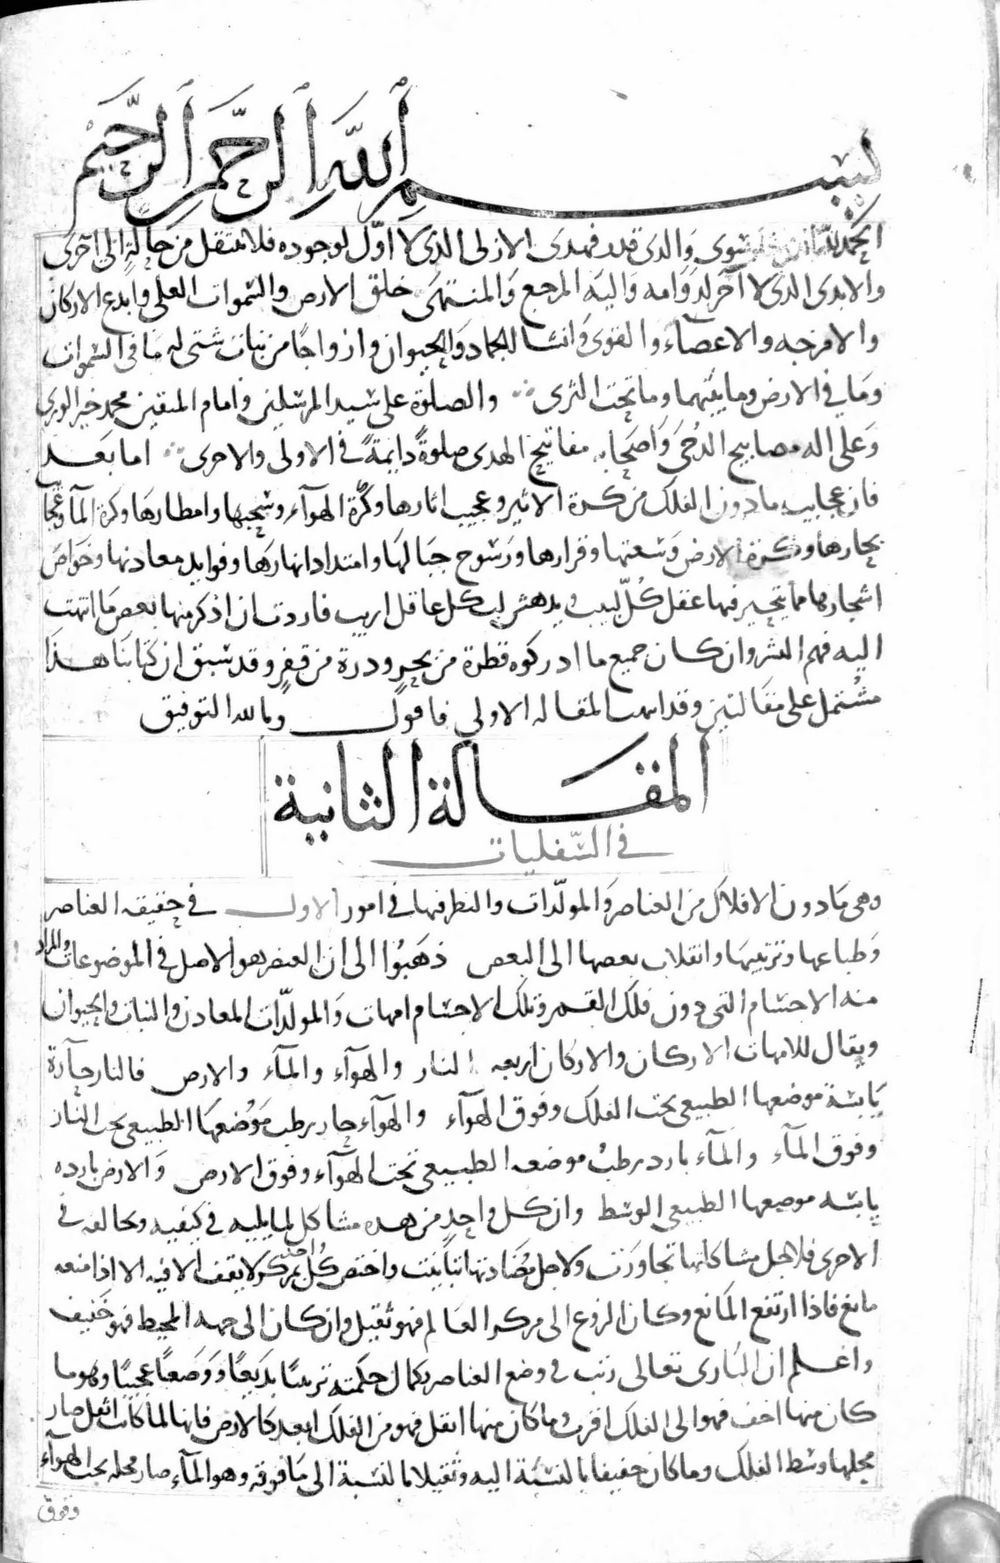 بسم الله الرحمن الرحيم
الحمد لله الذي خلق فسوى والذى قدر فهدى الازلى الذى لا اول لوجوده فلا ينتقل من حالة الى اخرى
والابدى الذى لا آخر لدوامه واليه المرجع والمنتهى خلق الارض والسموات العلى وابدع الاركان
والامزجه والاعضاء والقوى وانشا الجماد والحيوان وازواجا من نبات شتى له ما فى السموات
وما فى الارض وما بينهما وما تحت الثرى والصلوة على سيد المرسلين وامام المتقين محمد خير الورى
وعلى اله مصابيح الدجى واصحابه مفاتيح الهدى صلوة دايمة فى الاولى والاخرى اما بعد
فان عجايب ما دون الفلك من كرة الاثير وعجيب اثارها وكرة الهوآء وسحبها وامطارها وكرة المآ وعجا
بحارها وكرة الارض وسعتها وقرارها ورسوخ جبالها وامتداد انهارها وفوايد معادنها وخواص
اشجارها مما يتحير فيها عقل كل لبيب ويدهش لب كل عاقل اريب فاردت ان اذكر منها بعض ما انتهت
اليه فهم البشر وان كان جميع ما ادركوه قطرة من بحر وذرة من قفر وقد سبق ان كتابنا هذا
مشتمل على مقالتين وقد انتهت المقاله الاولى فاقول وبالله التوفيق
المقالة الثانية
فى السفليات
وهى ما دون الافلاك من العناصر والمولدات والنظر فيها فى امور الاول فى حقيقه العناصر
وطباعها وترتيبها وانقلاب بعضها الى البعض ذهبوا الى ان العنصر هو الاصل فى الموضوعات والمراد
منه الاجسام التى دون فلك القمر وتلك الاجسام امهات والمولدات المعادن والنبات والحيوان
ويقال للامهات الاركان والاركان اربعه النار والهوآء والمآء والارض فالنار حآرة
يابسة موضعها الطبيعى تحت الفلك وفوق الهوآء والهوآء حار رطب موضعها الطبيعى تحت النار
وفوق المآء والمآء بارد رطب موضعه الطبيعى تحت الهوآء وفوق الارض والارض بارده
يابسه موضعها الطبيعى الوسط وان كل واحد من هذه مشاكل لما يليه فى كيفيه ومخالفه فى
الاخرى فلاجل مشاكلتها تجاورت ولاجل مضادتها تباينت واختص كل واحد بمركز لا يقف الا فيه الا اذا منعه
مانع فاذا ارتفع المانع وكان النزوع الى مركز العالم فهو ثقيل وان كان الى جهه المحيط فهو خفيف
واعلم ان البارى تعالى رتب فى وضع العناصر بكمال حكمته ترتيبا بديعا ووضعا عجيبا وهو ما
كان منها اخف فهو الى الفلك اقرب وما كان منها اثقل فهو من الفلك ابعد كالارض فانها لما كانت اثقل صار
محلها وسط الفلك وما كان خفيفا بالنسبة اليه وثقيلا بالنسبة الى ما فوقه وهو المآء صار محله تحت الهوآء
وفوق